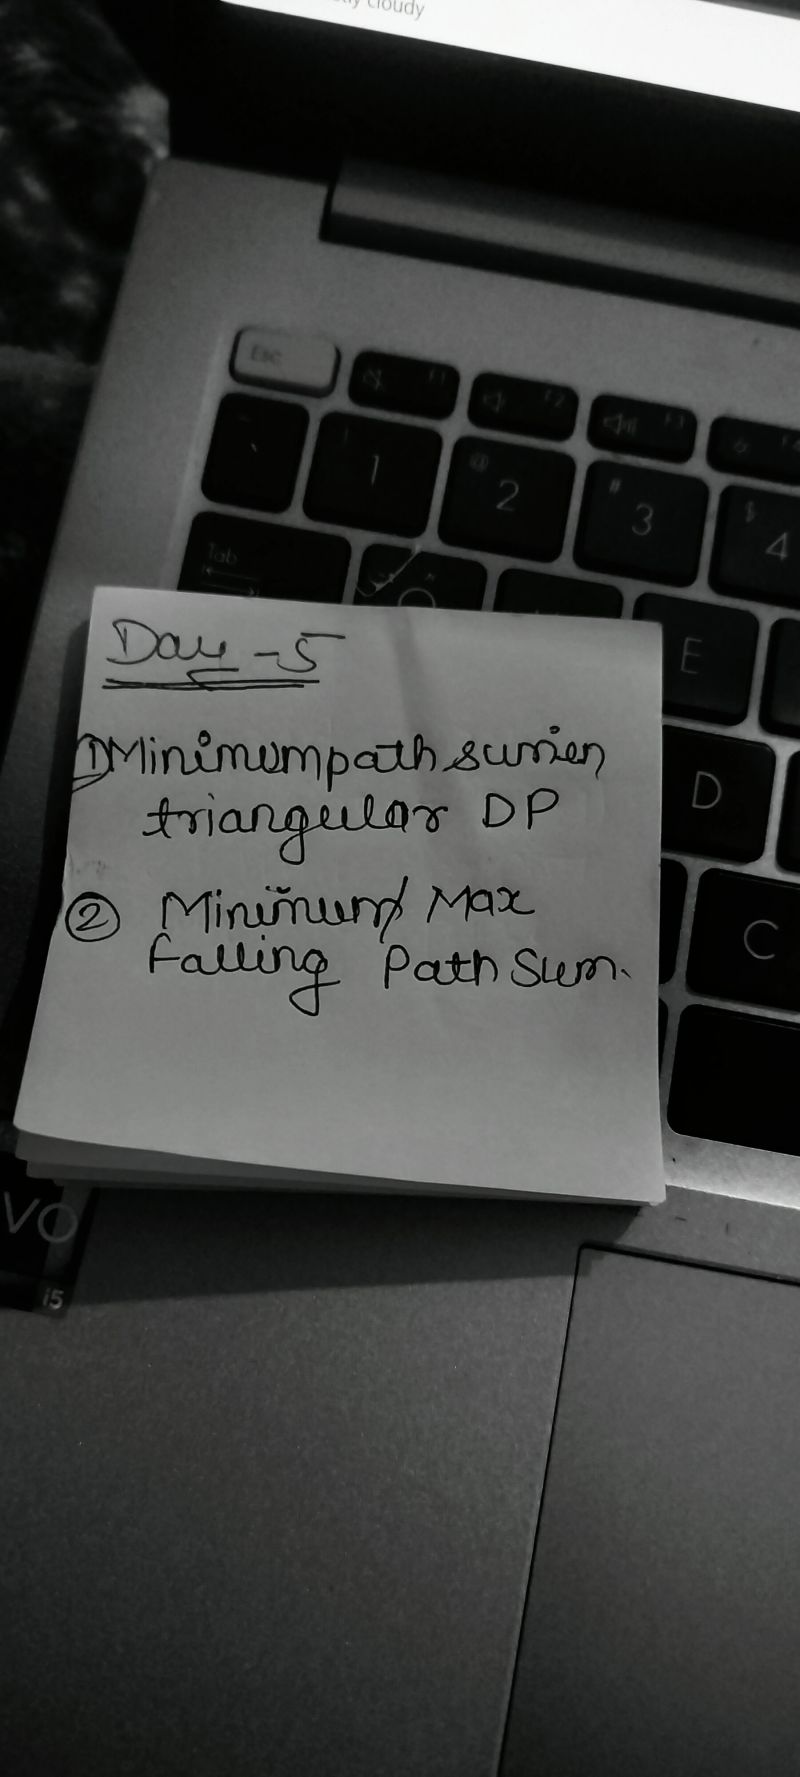 cloudy
Esc
F1
F2
F3
F4
~
`
!
1
@
2
#
3
$
4
Tab
E
D
C
Day-5
1) Minimum path sum in
triangular DP
② Minimum/Max
falling Path Sum.
VO
i5